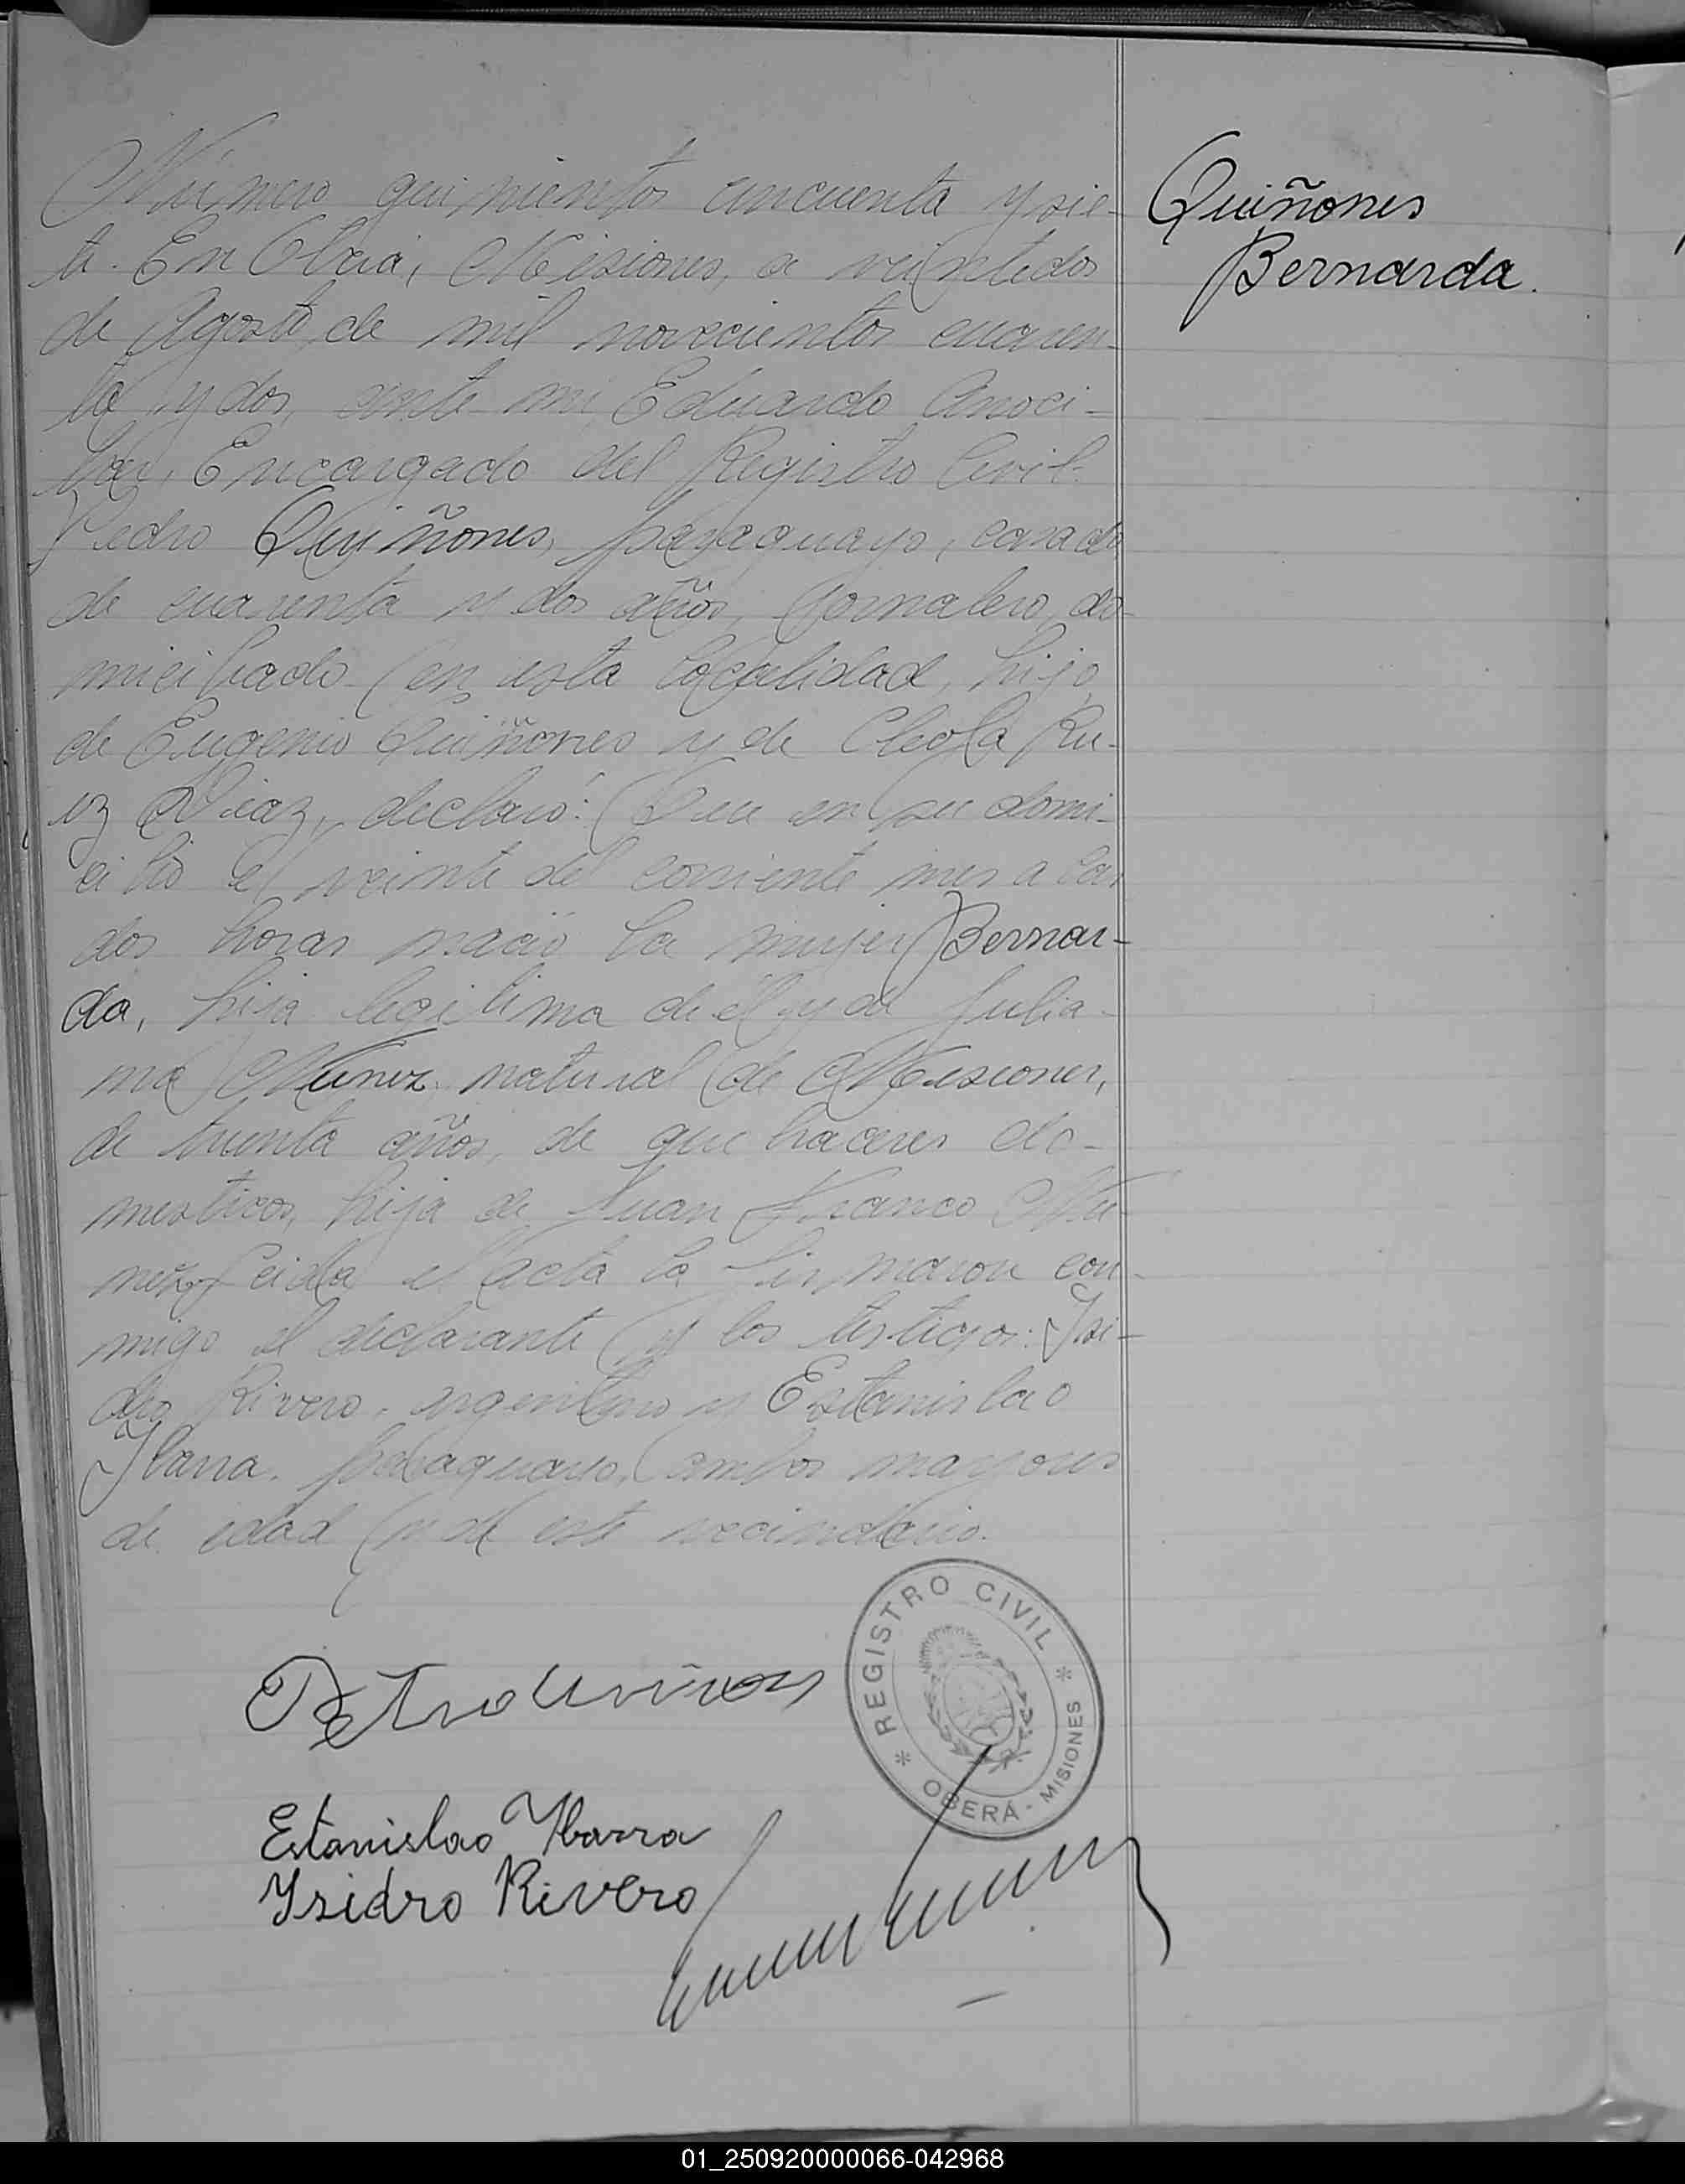 Número quinientos cincuenta y sie-
te. En Oberá, Misiones, a veintidos
de Agosto de mil novecientos cuaren-
ta y dos, ante mi, Eduardo Anoci-
bar, Encargado del Registro Civil.
Pedro Quiñones, paraguayo, casado
de cuarenta y dos años, jornalero, do-
miciliado en esta localidad, hijo
de Eugenio Quiñones y de Cleofa Ru-
iz Diaz, declaró: Que en su domi-
cilio el veinte del corriente mes a las
dos horas nació la mujer Bernar-
da, hija legitima de él y de Julia-
na Nunez natural de Misiones,
de treinta años, de que haceres do-
mesticos, hija de Juan Franco Nu-
nez Leida el acta la firmaron con-
migo el declarante y los testigos: Isi-
dro Rivero, argentino y Estanislao
Ibarra, paraguayo, ambos mayores
de edad y de este vecindario.
Quiñones
Bernarda.
Estanislao Ybarra
Ysidro Rivero
REGISTRO CIVIL
OBERÁ - MISIONES
01_250920000066-042968